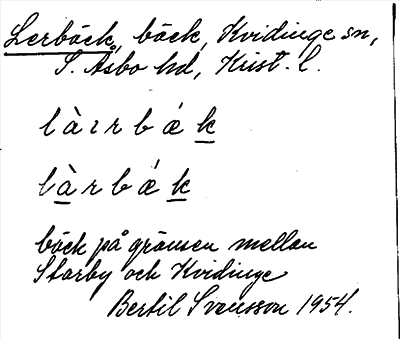 Lerbäck, bäck, Kvidinge sn,
S. Åsbo hd, Krist. l.
l à ı r b ǽ k
l à r b ǽ k
bäck på gränsen mellan
Starby och Kvidinge
Bertil Svensson 1954.